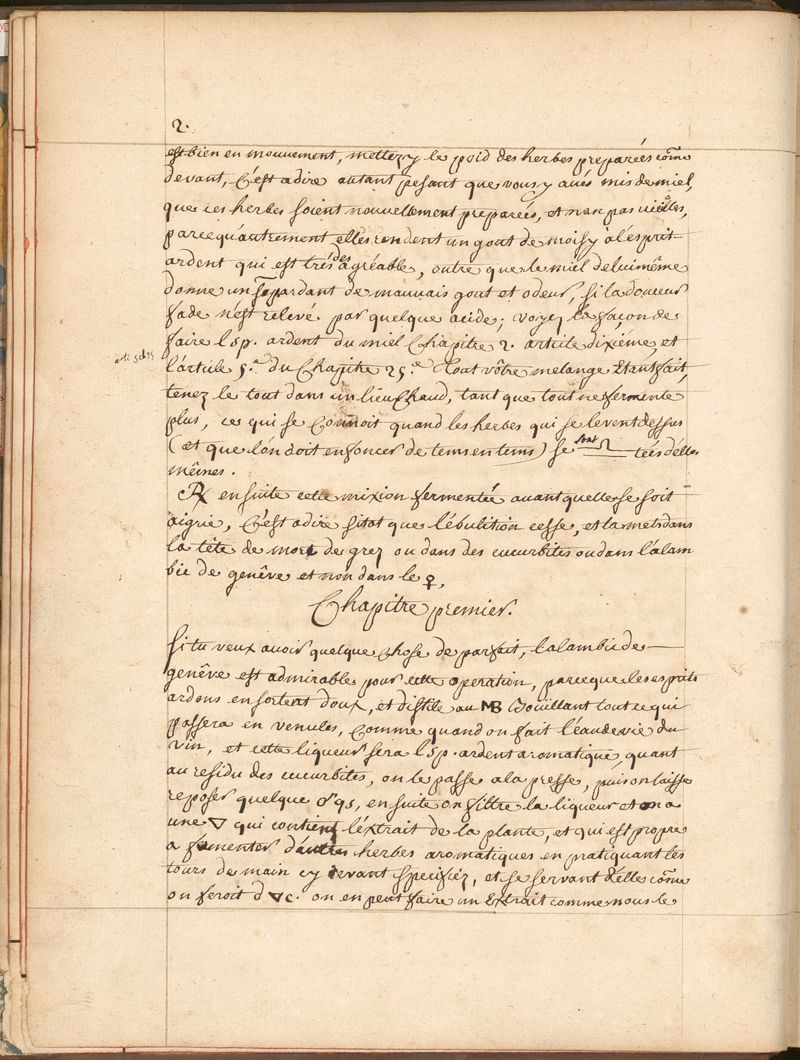 2.
est bien en mouuement, mettez y le poid des herbes preparées cõme
devant, C'est adire autant pesant que vous y aués mis de miel,
que ces herbes soient nouvellement preparées, et non pas vieilles,
parcequ'autrement elles rendent un gout de moisy à l'esprit
ardent qui est trés desagréable, outre que le miel de lui même
donne un sp. ardant de mauvais gout et odeur, si la douceur
fade n'est relevé par quelque acide; voyez la façon de
faire l'sp. ardent du miel Chapitre 2. article dixiéme, et
l'article 5.e du Chapitre 25.e Tout vôtre melange étant fait,
tenez le tout dans un lieu Chaud, tant que tout ne fermente
plus, ce qui se Connoit quand les herbes qui se levent dessus
(et que l'on doit enfoncer de tems en tems) se sont tées d'elles
mêmes.
℞ ensuite cette mixion fermentée auant quelle se soit
aigrie, C'est adire sitot que l'ébulition cesse, et la mets dans
la tête de mort de grez ou dans des cucurbites ou dans l'alam
bic de genêve et non dans le ♀,
Chapitre premier.
Si tu veux avoir quelque chose de parfait, l'alambic de
genêve est admirable pour cette operation, parceque les esprits
ardens en sortent doux, et distile au MB Bouillant tout ce qui
passera en venules, comme quand on fait l'eau de vie du
vin, et cette liqueur sera l'sp. ardent aromatique, quant
au residu des cucurbites, on le passe a la presse, puis on laisse
reposer quelque, ensuite on filtre la liqueur et on a
une ▽ qui contient l'éxtrait de la plante, et qui est propre
a fomenter d'autres herbes aromatiques en pratiquant les
tours de main cy devant specifiez, et se servant d'elles cõme
on feroit d ▽ c. on en peut faire un Extrait comme nous le